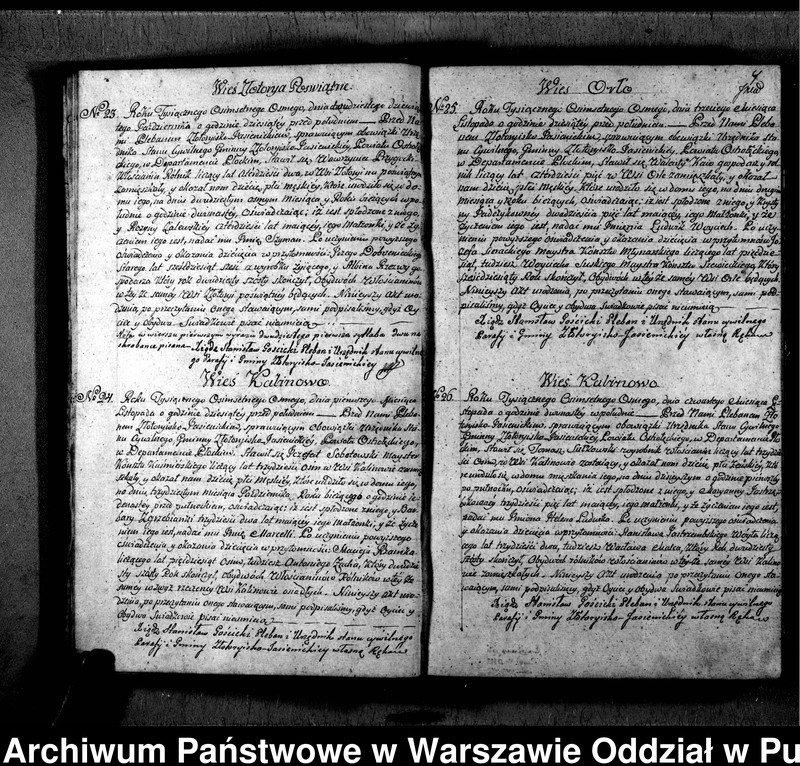 Wieś Złotorya Poświątne.
No 23. Roku Tysiącznego Osimsetnego Osmego, dnia dwudziestego dziewią-
tego Października o godzinie dziesiątej przed południem — Przed Na-
mi Plebanem Złotoryisko-Jasienickim, sprawuiącym obowiązki Urzę-
dnika Stanu Cywilnego Gminny Złotoryisko-Jasienickiej, Powiatu Ostrołę-
ckiego, w Departamencie Płockim, stawił się Wawrzyniec
Włościanin Rolnik liczący lat czterdzieści dwa, we Wsi Złotoryi na poświątnym
zamięszkały, y okazał nam dziecię płci męskiey, które urodziło się w do-
mu iego, na dniu dwudziestym osmym miesiąca y Roku bieżących w po-
łudnie o godzinie dwunastey, oświadczaiąc, iż iest spłodzone z niego,
y Rozyny Zalewskiey czterdzieści lat maiącey, iego Małżonki, y że ży-
czeniem iego iest, nadać mu Imię Szyman. Po uczynieniu powyższego
oświadczenia y okazaniu dziecięcia w przytomności:
Starego lat sześćdziesiąt z wyrobku żyjącego, y Albina go-
spodarza który rok dwudziesty szósty skończył, Obydwóch Włościaninów
wtey że samey Wsi Złotoryi poświątney będących. Ninieyszy Akt uro-
dzenia, po przeczytaniu onego stawaiącym, sami podpisaliśmy, gdyż Oy-
ciec y obydwa Swiadkowie pisać nieumieią
w wierszu pierwszym wyrazu dwudziestego pierwsza syllaba dwu na
skrobance pisana. Xiądz Stanisław Gościcki Pleban i Urzędnik Stanu cywilne-
go Parafji i Gminy Złotoryisko-Jasienickiey
Wieś Kalinowo
No 24. Roku Tysiącznego Osimsetnego Osmego, dnia pierwszego Miesiąca
Listopada o godzinie dziesiątey przed południem — Przed Nami Pleba-
nem Złotoryisko-Jasienickim, sprawuiącym Obowiązki Urzędnika Sta-
nu Cywilnego Gminny Złotoryisko-Jasienickiey, Powiatu Ostrołęckiego,
w Departamencie Płockim. Stawił się Jozefat Sobotowski Maystr
Konsztu liczący lat trzydzieści osm w Wsi Kalinowie zamię-
szkały, y okazał nam dziecię płci Męskiey, które urodziło się w domu iego,
na dniu trzydziestym miesiąca Października Roku bieżącego o godzinie ie-
denastey przed południem, oświadczaiąc, iż iest spłodzone z niego, y Bar-
bary trzydzieści dwa lat maiącey iego Małżonki, y że życze-
niem iego iest, nadać mu Imię Marcelli. Po uczynieniu powyższego
oświadczenia y okazaniu dziecięcia w przytomności: Macieja
liczącego lat pięćdziesiąt osm, tudzież Antoniego który dwudzie-
sty szósty Rok skończył, obydwóch Włościaninów Rolników wtey że
samey wzwyż rzeczoney Wsi Kalinowie osiadłych. Ninieyszy Akt uro-
dzenia, po przeczytaniu onego stawaiącym, sami podpisaliśmy, gdyż Oyciec y
Obydwa Swiadkowie pisać nieumieią
Xiądz Stanisław Gościcki Pleban i Urzędnik Stanu cywilnego
Parafji i Gminy Złotoryisko-Jasienickiey własną Ręką
Wieś Orło
No 25. Roku Tysiącznego Osimsetnego Osmego, dnia trzeciego Miesiąca
Listopada o godzinie dziesiątey przed południem — Przed Nami Pleba-
nem Złotoryisko-Jasienickim, sprawuiącym obowiązki Urzędnika Sta-
nu Cywilnego, Gminny Złotoryisko-Jasienickiey, Powiatu Ostrołęckiego,
w Departamencie Płockim, stawił się Walenty gospodarz y rol-
nik liczący lat czterdzieści pięć w Wsi Orle zamięszkały, y okazał
nam dziecię płci Męskiey, które urodziło się w domu iego, na dniu drugim
miesiąca y Roku bieżących, oświadczaiąc, iż iest spłodzone z niego, y Krysty-
ny dwadzieścia pięć lat maiącey, iego Małżonki, y że
życzeniem iego iest, nadać mu Imiona Ludwik Woyciech. Po uczy-
nieniu powyższego oświadczenia y okazania dziecięcia w przytomności Jo-
zefa Maystra Konsztu Młynarskiego liczącego lat pięćdzie-
siąt, tudzież Woyciecha Maystra Konsztu Szewckiego, który
sześćdziesiąty Rok skończył, Obydwóch wtey że samey Wsi Orle będących.
Ninieyszy Akt urodzenia, po przeczytaniu onego stawaiącym, sami pod-
pisaliśmy, gdyż Oyciec y obydwa Swiadkowie pisać nieumieią
Xiądz Stanisław Gościcki Pleban i Urzędnik Stanu cywilnego
Parafji i Gminy Złotoryisko-Jasienickiey własną Ręką
Wieś Kalinowo
No 26. Roku Tysiącznego Osimsetnego Osmego, dnia czwartego Miesiąca Li-
stopada o godzinie dwunastey w południe — Przed Nami Plebanem Zło-
toryisko-Jasienickim, sprawuiącym obowiązki Urzędnika Stanu Cywilnego
Gminny Złotoryisko-Jasienickiey, Powiatu Ostrołęckiego, w Departamencie Pło-
ckim, Stawił się Tomasz Sutkowski wyrobnik Włościanin liczący lat trzydzie-
ści osm, w Wsi Kalinowie zostaiący, y okazał nam dziecię płci Żeńskiey, któ-
re urodziło się w domu mięszkania iego, na dniu dzisieyszym o godzinie pierwszey
po północku, oświadczaiąc, iż iest spłodzone z niego, y Maryanny
trzydzieści pięć lat maiącey, iego Małżonki, y że życzeniem iego iest,
nadać mu Imiona Helena Ludwika. Po uczynieniu powyższego oświadczenia
y okazania dziecięcia w przytomności: Stanisława Jastrzembskiego Woyta liczą-
cego lat trzydzieści dwa, tudzież Wacława który Rok dwudziesty
szósty skończył, Obydwóch rolników Włościaninów wteyże samey Wsi Kalino-
wie zamięszkałych. Ninieyszy Akt urodzenia po przeczytaniu onego sta-
waiącym, sami podpisaliśmy, gdyż Oyciec y obydwa Swiadkowie pisać nieumieią
Xiądz Stanisław Gościcki Pleban i Urzędnik Stanu cywilnego
Parafji i Gminy Złotoryisko-Jasienickiey własną Ręką
Archiwum Państwowe w Warszawie Oddział w Pu